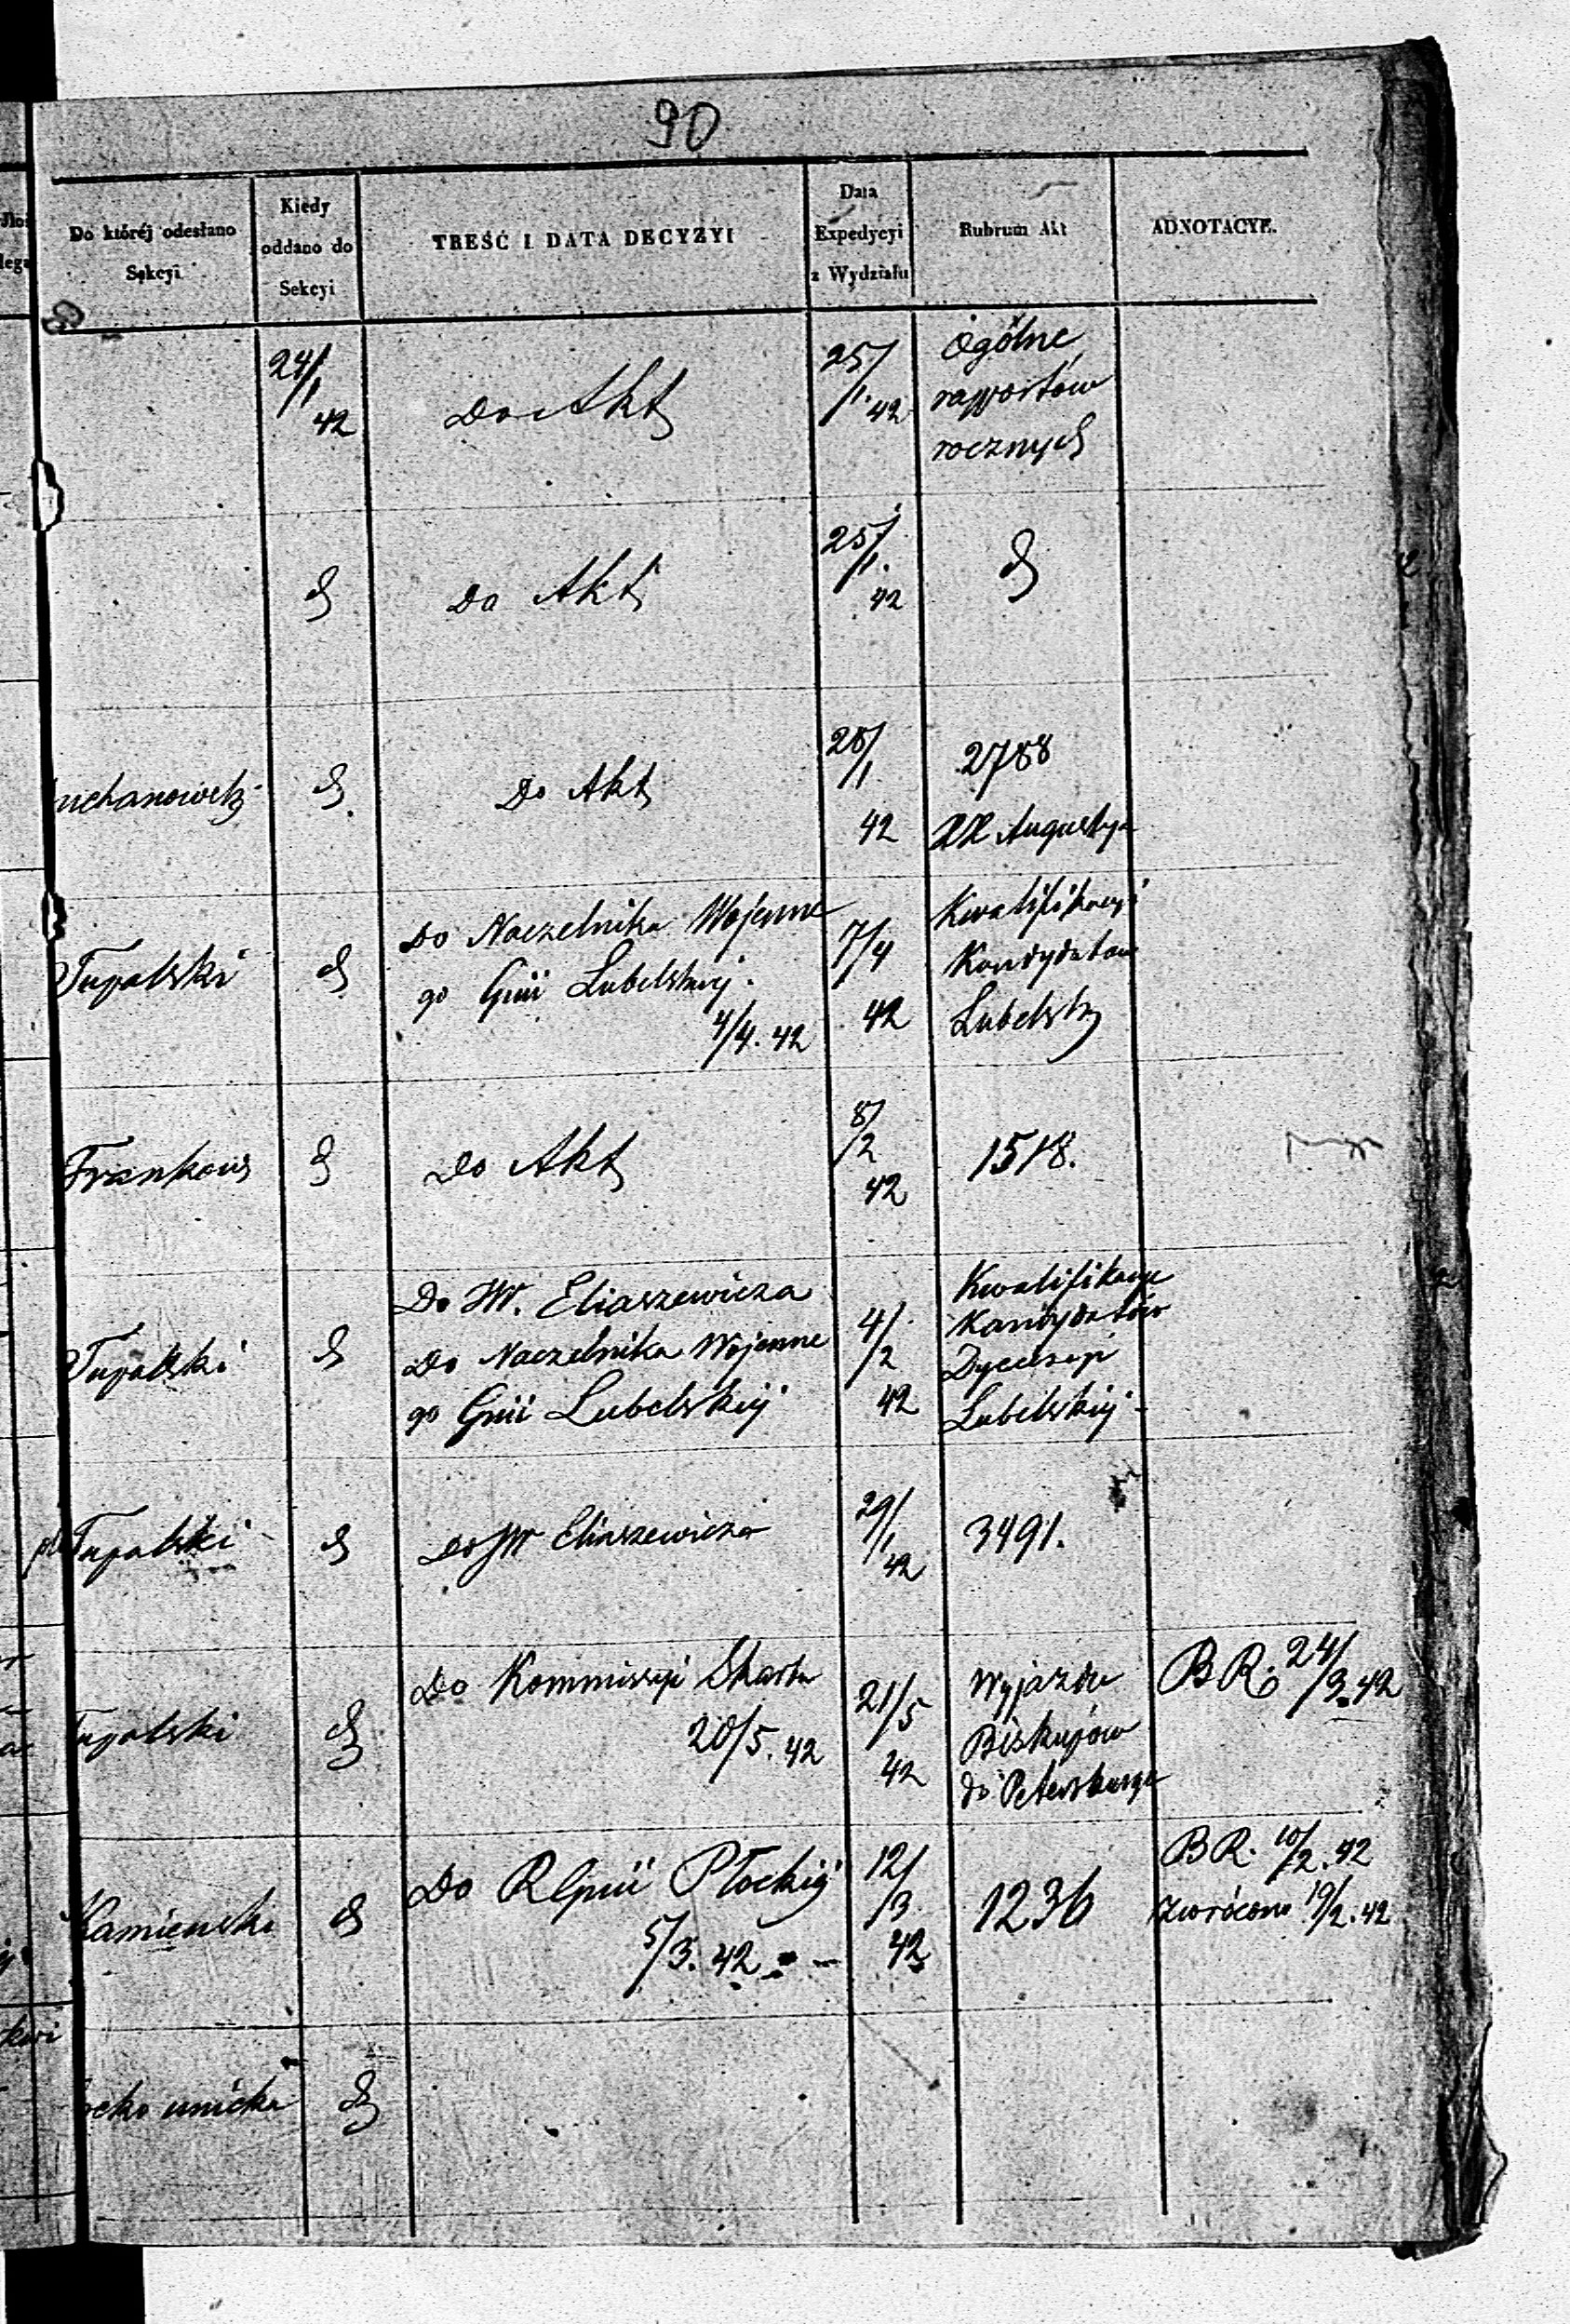 90
Do któréj odesłano
Sekcyi
Kiedy
oddano do
Sekcyi
TREŚĆ I DATA DECYZYI
Data
Expedycyi
z Wydziału
Rubrum Akt
ADNOTACYE.
24/1 42
Do Akt
25/1. 42
Ogólne
rapportów
rocznych
Do Akt
25/1. 42
Do Akt
28/1. 42
2788
XX Augustyn
Tupalski
Do Naczelnika Wojenne
go Gnii Lubelskiej.
4/4. 42
7/4 42
Kwalifikacyi
Kandydatów
Lubelsk
Do Akt
8/2 42
1518.
Tupalski
Do JW. Eliaszewicza
Do Naczelnika Wojenne
go Gnii Lubelskiej
4/2 42
Kwalifikacye
Kandydatów
Dyecezyi
Lubelskiej
Tupalski
Do JW Eliaszewicza
29/1 42
3491.
Tupalski
Do Kommissyi Skarbu
20/5. 42
21/5 42
Wyjazdu
Biskupów
do Petersburga
BR. 24/3. 42
Kamienski
Do RGnii Płockiej
5/3. 42
12/3. 42
1236
BR. 10/2. 42
zwrócono 19/2. 42
unicka